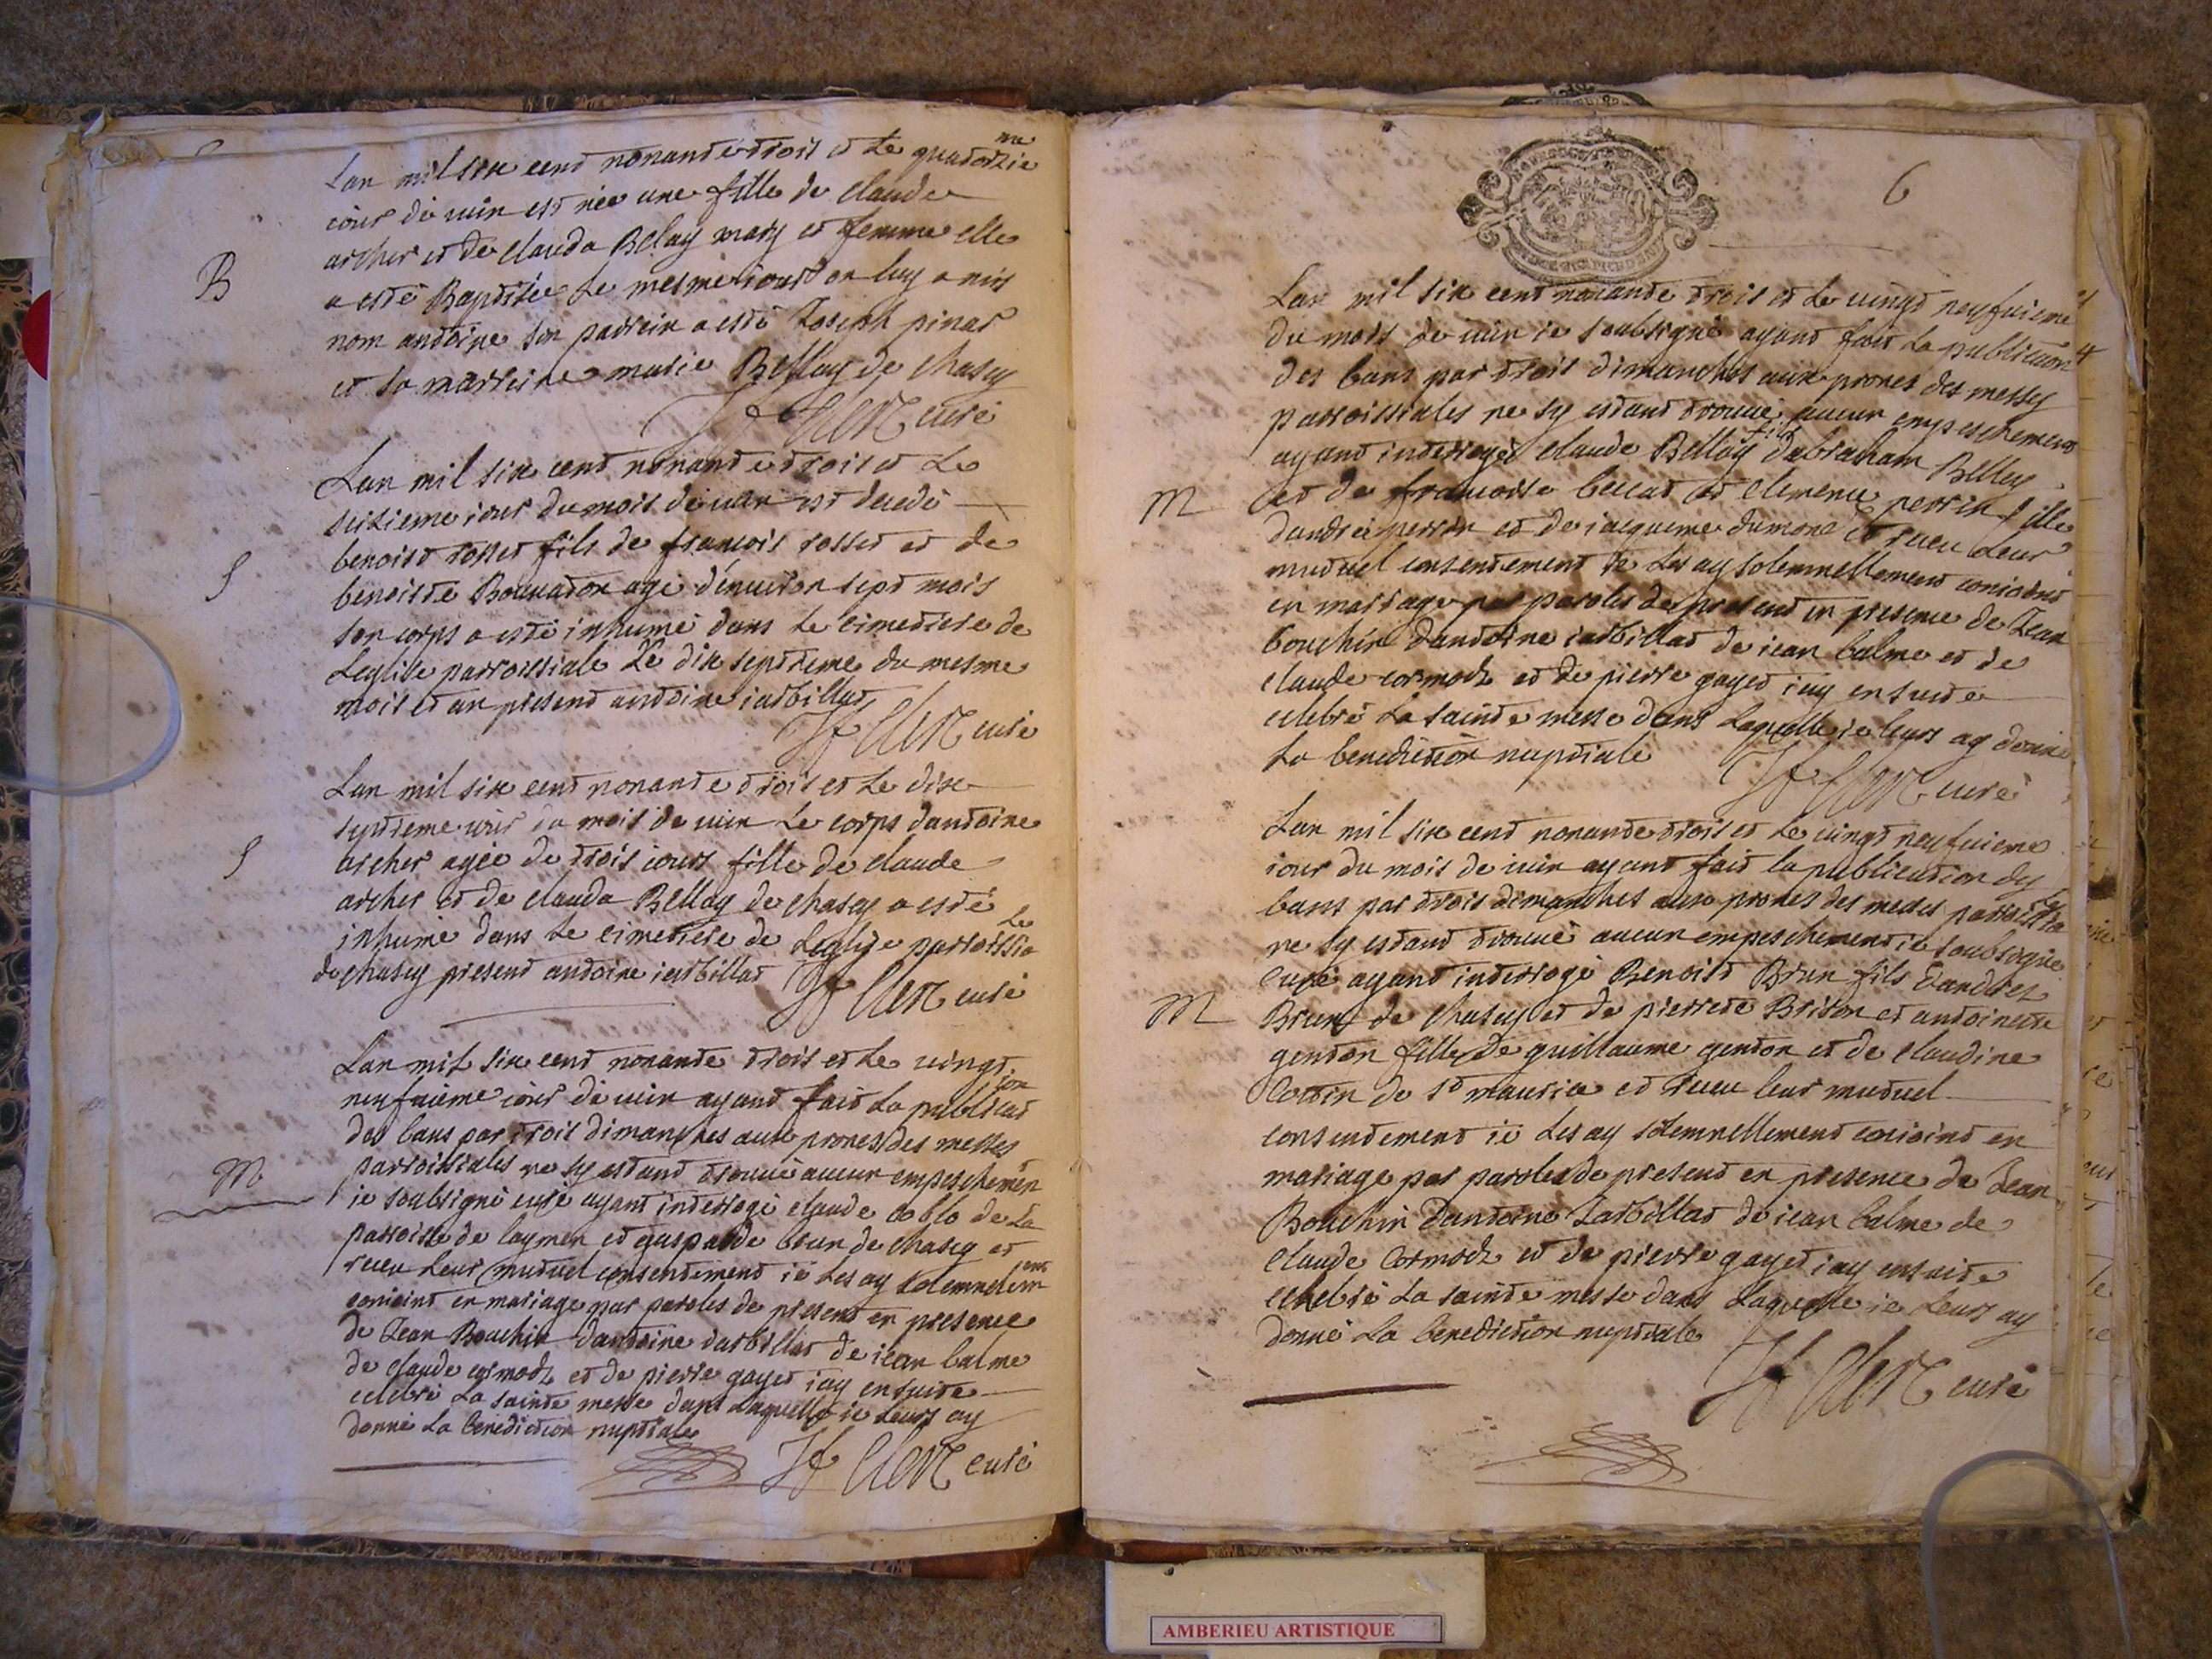 Lan mil six cent nonante trois et le quatorzie me
iour de iuin est née une fille de claude
archer et de clauda Bellay mary et femme elle
B
a esté Baptisée le mesme iour on luy a mis
nom antoine son parrein a esté Joseph pinar
et sa marreine marie Bellay de chasey
curé
Lan mil six cent nonante trois et le
seizieme iour du mois de iuin est decedé
benoist rosset fils de francois rosset et de
S
benoiste age d'enuiron sept mois
son corps a esté inhumé dans le cimetiere de
Leglise parroissiale Le dix septieme du mesme
mois et an present antoine iarbillat
curé
Lan mil six cent nonante trois et Le dix
septieme iour du mois de iuin Le corps dantoine
S
archer agée de trois iours fille de claude
archer et de clauda Bellay de chasey a esté
inhumé dans Le cimetiere de Leglise parroissia le
de chasey present antoine iarbillat
curé
Lan mil six cent nonante trois et Le vingt
neufuieme iour de iuin ayant fait La publicat ion
des bans par trois dimanches aux prones des messes
M
parroissiales ne sy estant trouué aucun empeschemen t
ie soubsigné curé ayant interrogé claude de La
parroisse de et gasparde brun de chasey et
receu Leur mutuel consentement ie Les ay solemnelem ent
conioint en mariage par paroles de present en presence
de Jean Bouchin dantoine iarbillat de iean balme
de claude cormoz et de pierre gayet iay ensuite
celebré La sainte messe dans Laquelle ie Leurs ay
donné La benediction nuptiale
curé
6
Lan mil six cent nonante trois et Le vingt neufuieme
du mois de iuin ie soubsigné ayant fait La publication
des bans par trois dimanches aux prones des messes
parroissiales ne sy estant trouué aucun empeschement
ayant interrogé claude Bellay fils dabraham Bellay
M
et de francoise et clemence perrin fille
dandré perrin et de iacqueme dumone et receu Leur
mutuel consentement ie Les ay solemnellement conioint
en mariage par paroles de present en presence de Jean
bouchin dantoine iarbillat de iean balme et de
claude cormoz et de pierre gayet iay ensuite
celebré La sainte messe dans Laquelle ie leurs ay donné
La benediction nuptiale
curé
Lan mil six cent nonante trois et Le vingt neufuieme
iour du mois de iuin ayant fait la publication des
bans par trois dimanches aux prones des messes parroissia les
ne sy estant trouué aucun empeschement ie soubsigné
curé ayant interrogé Benoist Brun fils dandrez
M
Brun de chasey et de pierrete Brison et antoinette
genton fille de guillaume genton et de claudine
cottin de st maurice et receu leur mutuel
consentement ie Les ay solemnellement conioint en
mariage par paroles de present en presence de Jean
Bouchin dantoine Iarbillat de iean balme de
claude Cormoz et de pierre gayet iay ensuite
celebré La sainte messe dans Laquelle ie Leurs ay
donné La benediction nuptiale
curé
AMBERIEU ARTISTIQUE